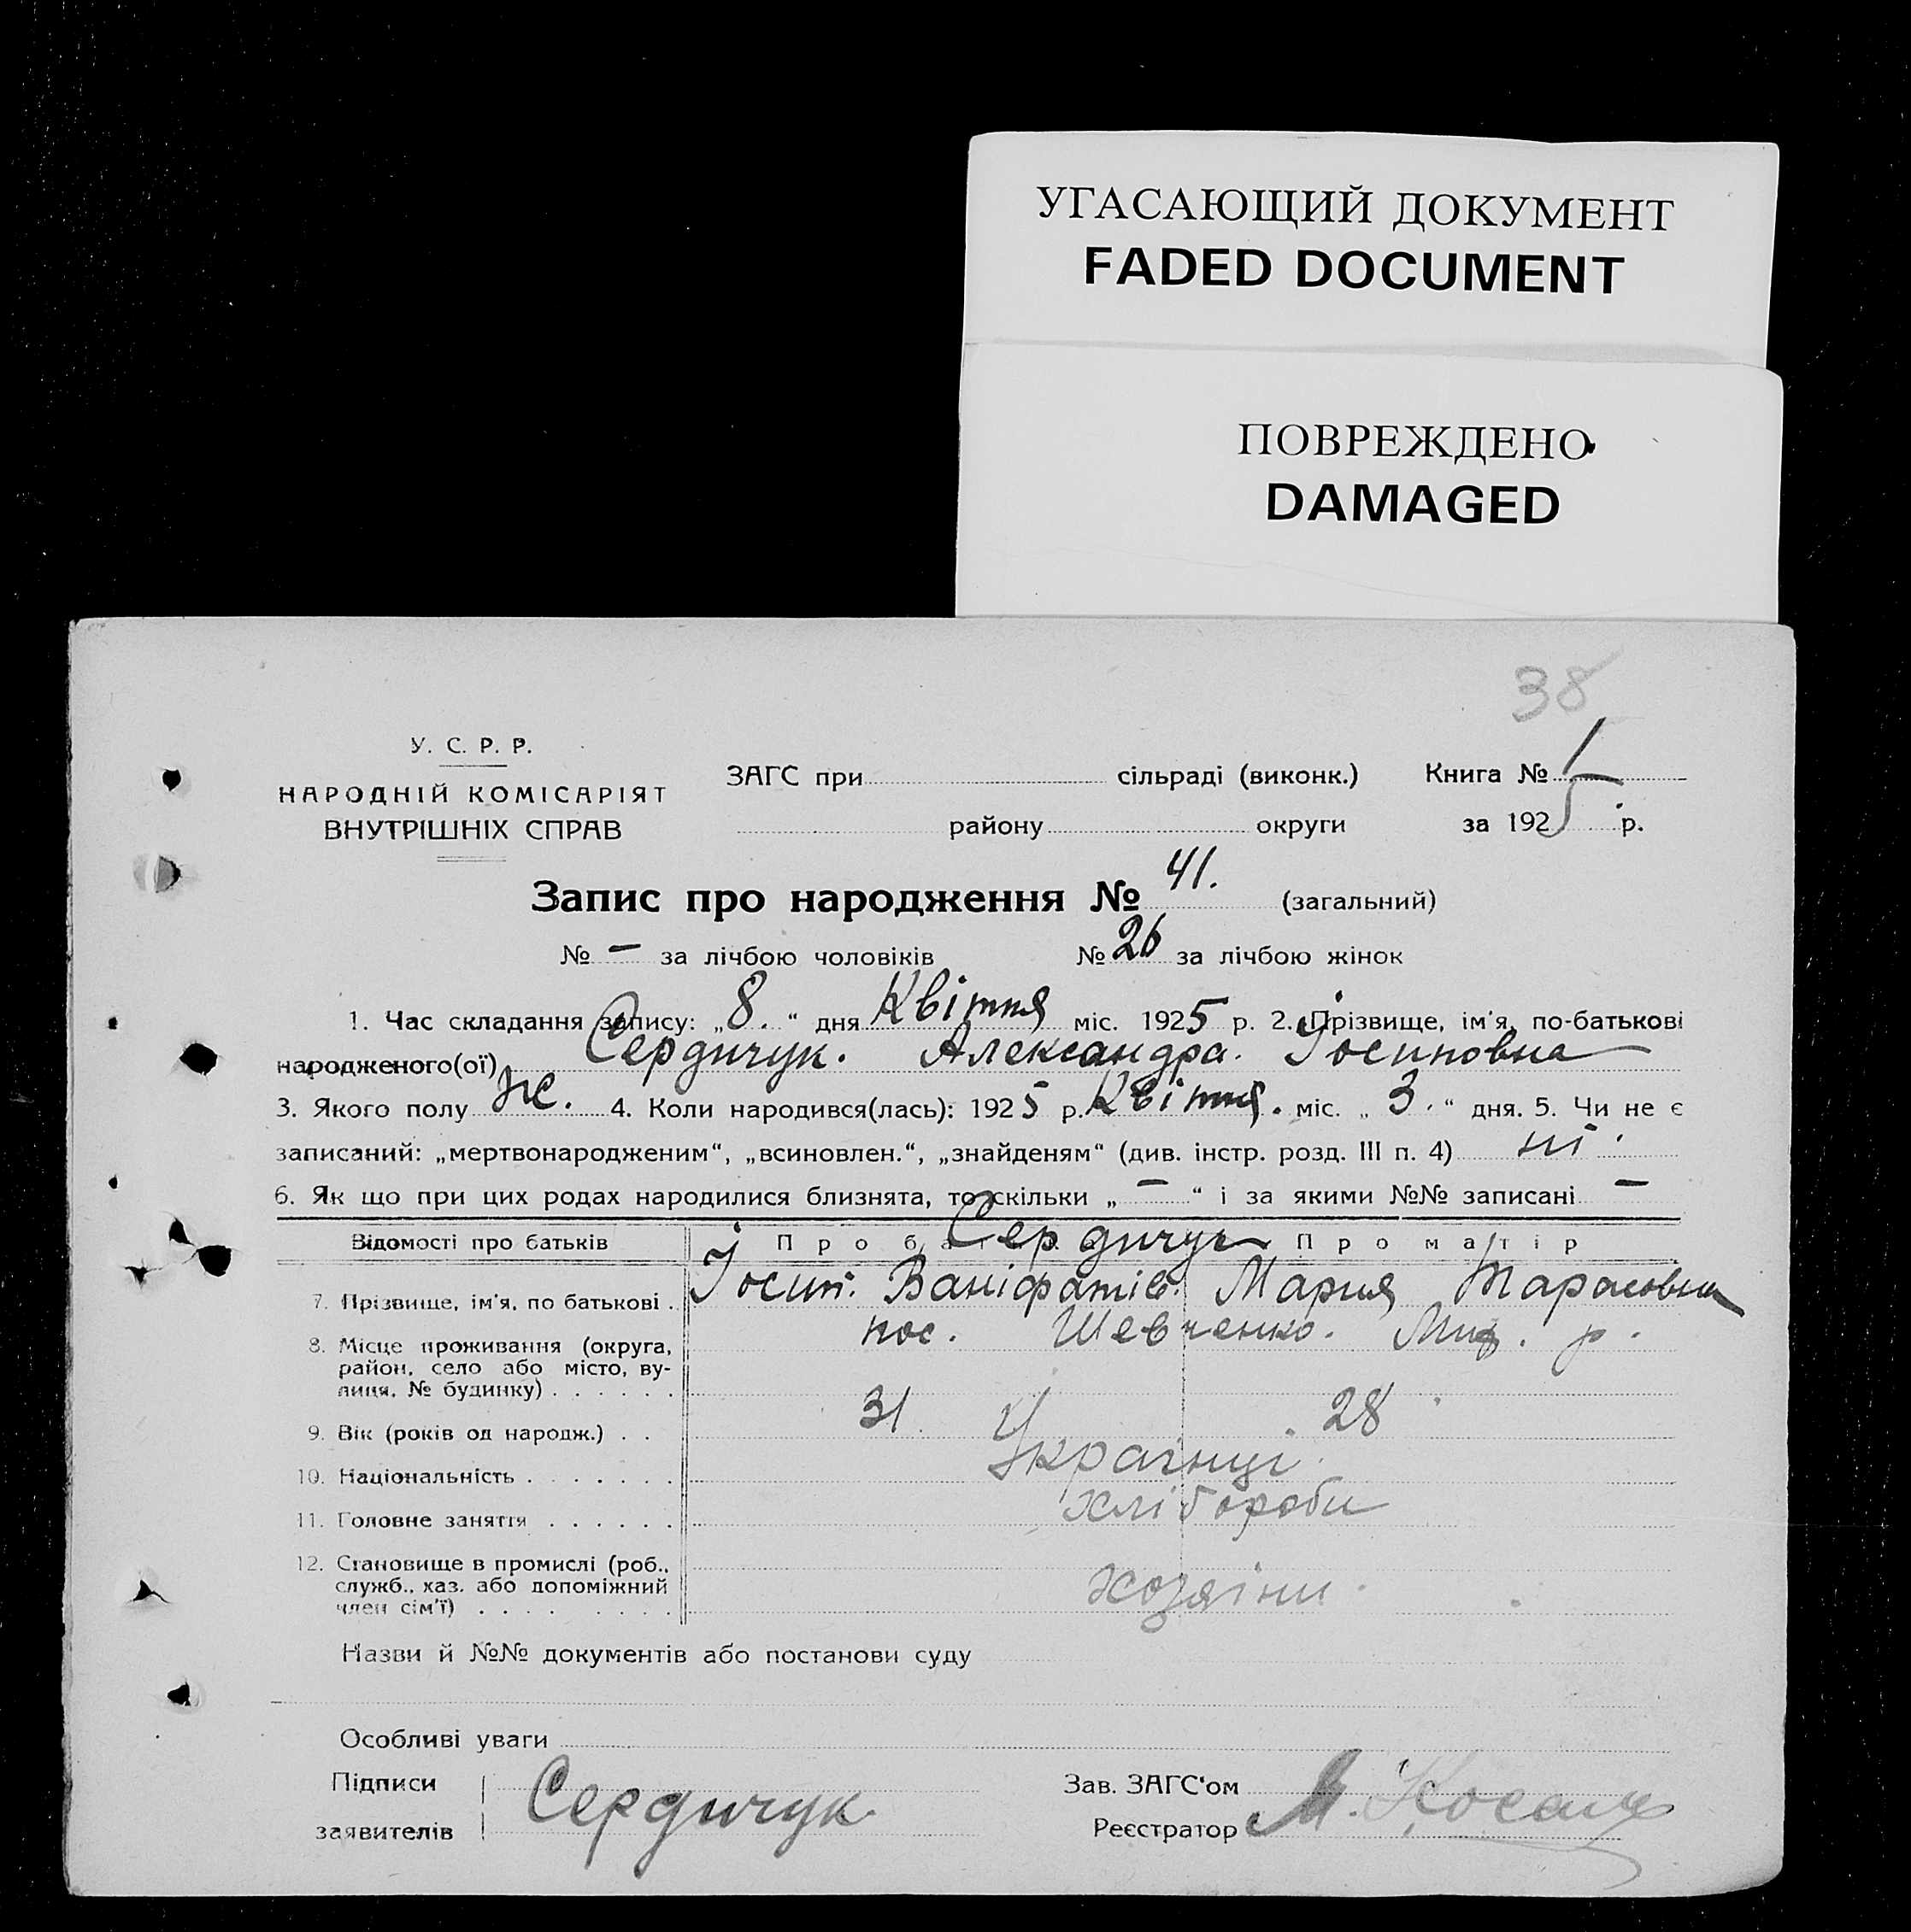 УГАСАЮЩИЙ ДОКУМЕНТ
FADED DOCUMENT
ПОВРЕЖДЕНО
DAMAGED
38
У. С. Р. Р.
НАРОДНІЙ КОМІСАРІЯТ
ВНУТРІШНІХ СПРАВ
ЗАГС при сільраді (виконк.) Книга № 1
району округи за 1925 р.
Запис про народження № 41. (загальний)
№ — за лічбою чоловіків № 26 за лічбою жінок
1. Час складання запису: „8.“ дня Квітня міс. 1925 р. 2. Прізвище, ім'я, по-батькові
народженого(ої) Сердичук. Александра. Іосиповна
3. Якого полу ж. 4. Коли народився(лась): 1925 р. Квітня. міс. „3.“ дня. 5. Чи не є
записаний: „мертвонародженим“, „всиновлен.“, „знайденям“ (див. інстр. розд. III п. 4) ні.
6. Як що при цих родах народилися близнята, то скільки „—“ і за якими №№ записані —
Сердичук
Відомості про батьків Про батька Про матір
7. Прізвище, ім'я, по батькові . Іосип. Ваніфатів. Мария Тарасовна
8. Місце проживання (округа, район, село або місто, вулиця, № будинку) . . . . . . пос. Шевченко. р.
9. Вік (років од народж.) . . 31. 28
10. Національність . . . . . . . Українці.
11. Головне заняття . . . . . . Хлібороби
12. Становище в промислі (роб., служб., хаз. або допоміжний член сім'ї) . . . . . . . . Хозяіни.
Назви й №№ документів або постанови суду
Особливі уваги
Підписи заявителів Сердичук
Зав. ЗАГС'ом
Реєстратор М.